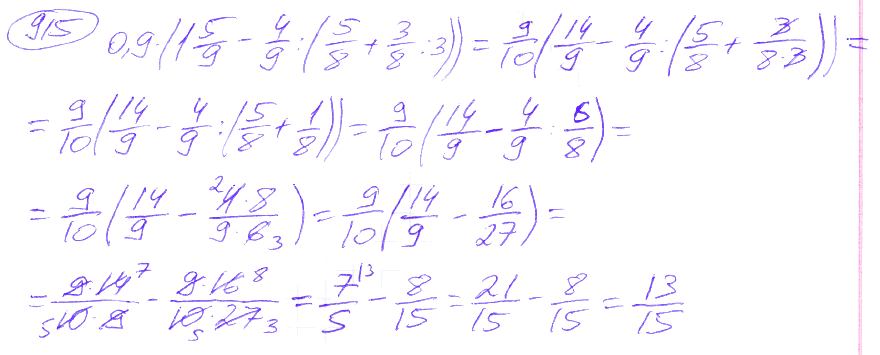 915 0,9·(1 5/9 - 4/9 : (5/8 + 3/8 : 3)) = 9/10 (14/9 - 4/9 : (5/8 + 3/(8·3))) =
= 9/10 (14/9 - 4/9 : (5/8 + 1/8)) = 9/10 (14/9 - 4/9 : 6/8) =
= 9/10 (14/9 - ²4·8/(9·6₃)) = 9/10 (14/9 - 16/27) =
= 9·14⁷/(₅10·9) - 9·16⁸/(10₅·27₃) = 7^(13/5) - 8/15 = 21/15 - 8/15 = 13/15